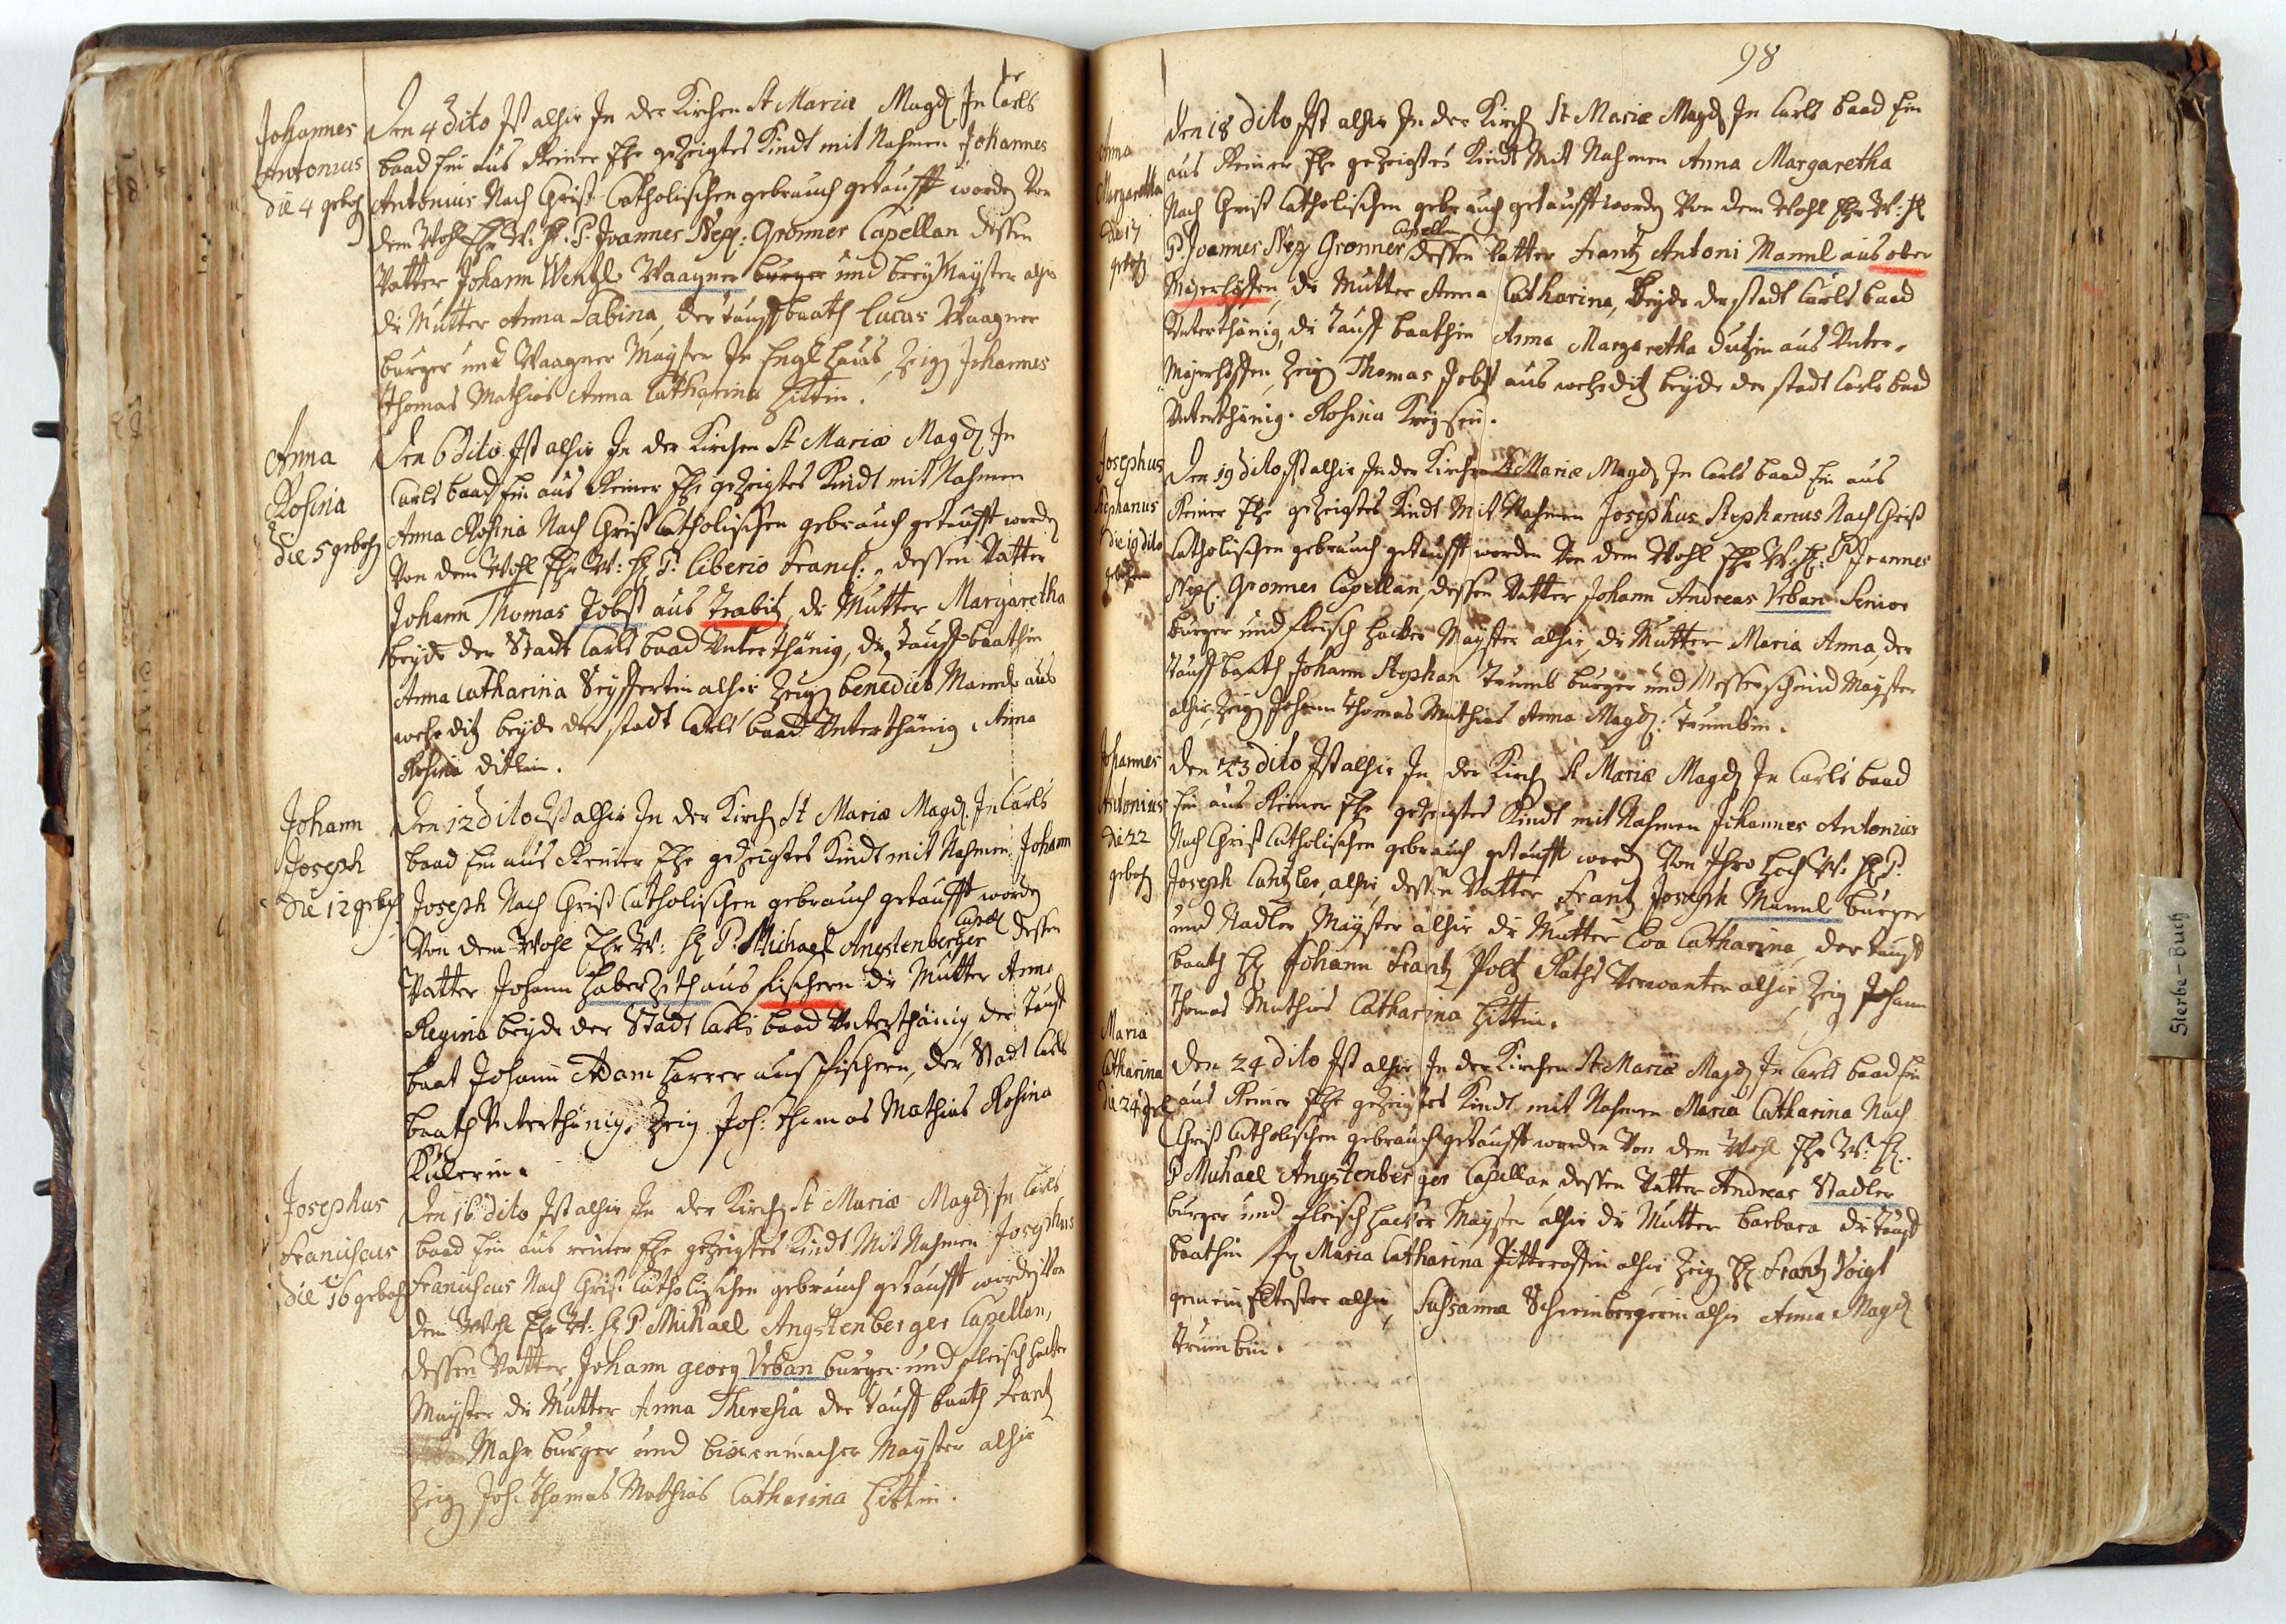 Johannes
Antonius
die 4 gebohr
Den 4 dito Ist alhir In der Kirchen St Mariæ Magd: In Carls
baad Ein aus Reiner Ehe gezeigtes Kindt mit Nahmen Johannes
Antonius Nach Christ Catholischen gebrauch getaufft worden Von
dem Wohl Ehr W: H: P: Joannes Nep: Gronner Capellan dessen
Vatter Johann Wentzl Waagner burger und Maÿster alhir
die Mutter Anna Sabina, der tauffbaath Lucas Waagner
burger und Waagner Maÿster In Englhaus, Zeig Johannes
Thomas Mathias Anna Catharina Hittin.
Anna
Rosina
die 5 gebohr
Den 6 dito Ist alhir In der Kirchen St Mariæ Magd: In
Carls baad Ein aus Reiner Ehe gezeigtes Kindt mit Nahmen
Anna Rosina Nach Christ Catholischen gebrauch getaufft worden
Von dem Wohl Ehr W: H: P: Liberio Franc: dessen Vatter
Johann Thomas Jobst aus Trabitz, die Mutter Margaretha
beyde der Stadt Carls baad Unterthänig, die tauff baathin
Anna Catharina Seÿffertin alhir Zeug Benedict aus
weheditz beyde der stadt Carls baad Unterthänig, Anna
Rosina
Johann
Joseph
die 12 gebohr
Den 12 dito Ist alhir In der Kirch St Mariæ Magd: In Carls
baad Ein aus Reiner Ehe gezeigtes Kindt mit Nahmen Johann
Joseph Nach Christ Catholischen gebrauch getaufft worden
Von dem Wohl Ehr W: H: P: Michael Angstenberger Capel dessen
Vatter Johann Haberzeth aus fischern die Mutter Anna
Regina beyde der Stadt Carls baad Unterthänig, der tauff
baat Johann Adam Harrer aus fischern, der Stadt Carls
baath Unterthänig, Zeig Joh: Thomas Mathias Rosina
Josephus
Franciscus
die 16 gebohr
Den 16 dito Ist alhir In der Kirch St Mariæ Magd: In Carls
baad Ein aus reiner Ehe gezeigtes Kindt Mit Nahmen Josephus
Franciscus Nach Christ Catholischen gebrauch getaufft worden Von
dem Wohl Ehr W: H: P Michael Angstenberger Capellan,
dessen Vatter, Johann georg Urban burger und fleisch hacker
Maÿster die Mutter Anna Theresia der tauff baath Frantz
Mahr burger und bixenmacher Maÿster alhir
Zeig Joh: Thomas Mathias Catharina Hittin.
98
Anna
Margaretha
die 17
gebohr
Den 18 dito Ist alhir In der Kirch St Mariæ Magd: In Carls baad Ein
aus Reiner Ehe gezeigtes Kindt Mit Nahmen Anna Margaretha
Nach Christ Catholischen gebrauch getaufft worden Von dem Wohl Ehr W: H
P: Joannes Nep: Gronner Capellan dessen Vatter Frantz Antoni Mannl aus ober
Maÿerhöffen, die Mutter Anna Catharina, Beyde der stadt Carls baad
Unterthänig, die tauff baathin Anna Margaretha aus Unter-
Maÿerhöffen, Zeig Thomas Jobst aus wehediz beyde der stadt Carls baad
Unterthänig. Rosina
Josephus
Stephanus
die 19 dito
gebohr
Den 19 dito Ist alhir In der Kirchen St Mariæ Magd: In Carls baad Ein aus
Reiner Ehe gezeigtes Kindt Mit Nahmen Josephus Stephanus Nach Christ
Catholischen gebrauch getaufft worden Von dem Wohl Ehr W: H: P Joannes
Nep: Gronner Capellan, dessen Vatter Johann Andreas Urban Senior
burger und fleisch hacker Maÿster alhir, die Mutter Maria Anna, der
tauff baath Johann Stephan Trumb burger und Messerschmid Maÿster
alhir, Zeig Johann Thomas Mathias Anna Magd: Trumbin.
Johannes
Antonius
die 22
gebohr
Den 23 dito Ist alhir In der Kirch St Mariæ Magd: In Carls baad
Ein aus Reiner Ehe gezeigtes Kindt mit Nahmen Johannes Antonius
Nach Christ Catholischen gebrauch getaufft word Von Ihro Hoch W: H: P:
Joseph Cantzler alhir, dessen Vatter Frantz Joseph Mannl burger
und Nadler Maÿster alhir die Mutter Eva Catharina, der tauff
baath H: Johann Frantz Poltz Raths Verwanter alhir, Zeig Johann
Thomas Mathias Catharina Hittin.
Maria
Catharina
die 24 geb
Den 24 dito Ist alhir In der Kirchen St Mariæ Magd: In Carls baad Ein
aus Reiner Ehe gezeigtes Kindt mit Nahmen Maria Catharina Nach
Christ Catholischen gebrauch getaufft worden Von dem Wohl Ehr W: H:
P Michael Angstenberger Capellan, dessen Vatter Andreas Stadler
burger und fleisch hacker Maÿster alhir die Mutter barbara die tauff
baathin Fr: Maria Catharina Pitteroffin alhir, Zeig H: Frantz Voigt
gemein Eltester alhir, Sussanna Scheinbergerin alhir Anna Magd
Trumbin.
Sterbe-Buch